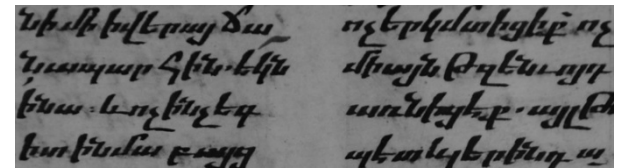 նի մի ի վերայ ճա
նապարհին. եկն
ի նա. և ոչ ինչ եգ
իտ ի նմա բայց
ոչ երկմտիցէք ոչ
միայն թզենւոյդ
առնիցէք. այլ թ
պետ և լերինդ ա